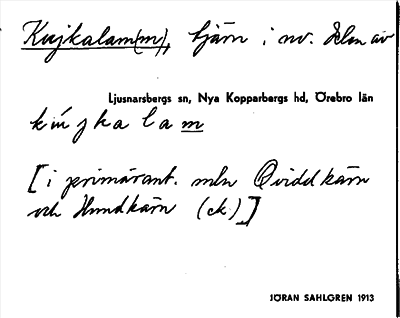 Kujkalam(m), tjärn i nv. delen av
Ljusnarsbergs sn, Nya Kopparbergs hd, Örebro län
kújkalam
[i primärant. mln Qviddkärn
och Hundkärn (ck)]
JÖRAN SAHLGREN 1913